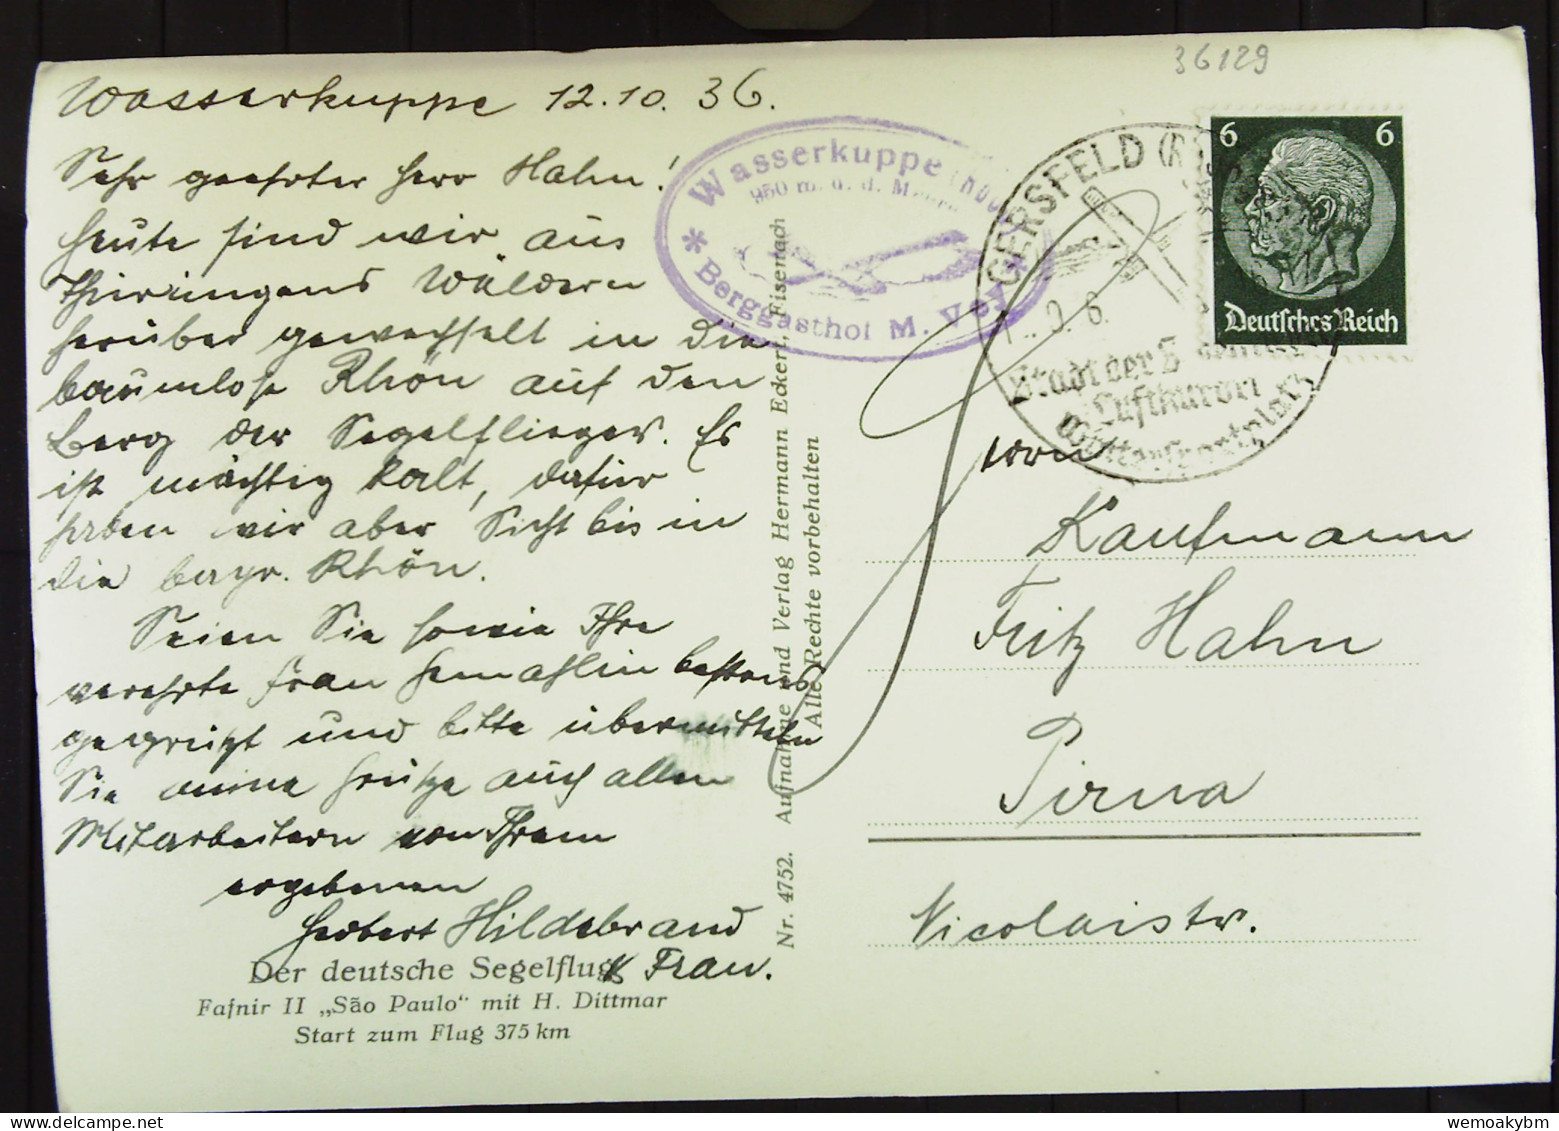 36129
Wasserkuppe 12.10.36.
Sehr geehrter Herr Hahn!
Heute sind wir aus
Thüringens Wäldern
herüber gewechselt in die
baumlose Rhön auf den
Berg der Segelflieger. Es
ist mächtig kalt, dafür
haben wir aber Sicht bis in
die bayr. Rhön.
Seien Sie sowie Ihre
verehrte Frau Gemahlin bestens
gegrüßt und bitte übermitteln
Sie meine Grüße auch allen
Mitarbeitern von Ihrem
ergebenen
Herbert Hildebrand
& Frau.
Der deutsche Segelflug
Fafnir II „São Paulo“ mit H. Dittmar
Start zum Flug 375 km
Nr. 4752. Aufnahme und Verlag Hermann Eckert, Eisenach
Alle Rechte vorbehalten
* Wasserkuppe (Rhön) *
950 m. ü. d. Meere
Berggasthof M. Vey
GERSFELD (R
Stadt der Segelflieger
Luftkurort
Wintersportplatz
6 6
Deutsches Reich
Herrn
Kaufmann
Fritz Hahn
Pirna
Nicolaistr.
wemoakybm